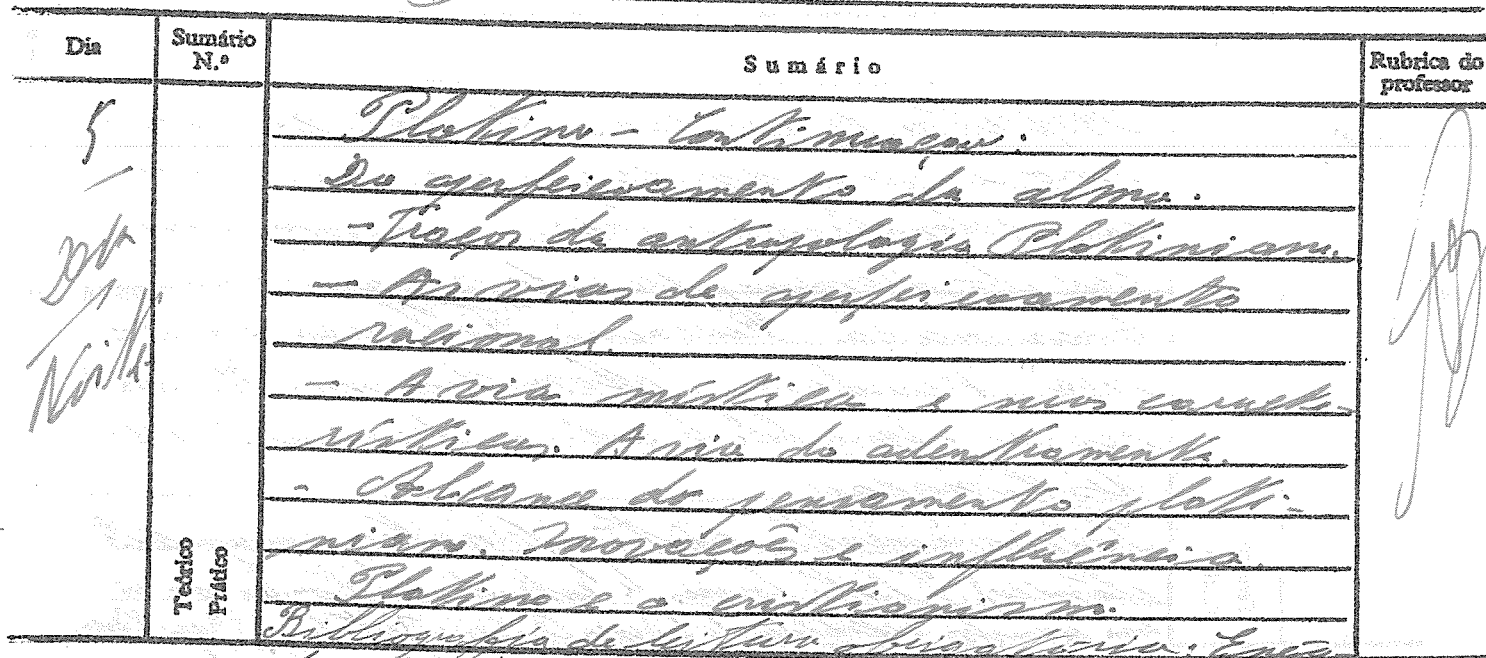 Dia
Sumário
N.º
Sumário
Rubrica do
professor
5
Noite
Plotino - Continuação:
Do aperfeiçoamento da alma.
- Traços da antropologia Plotiniana.
- As vias de aperfeiçoamento
racional.
- A via mística e suas caracte-
rísticas. A via do adentramento.
- Alcance do pensamento ploti-
niano. Inovações e influência.
Plotino e o cristianismo.
Bibliografia de leitura obrigatória: Enéa-
Teórico
Prático